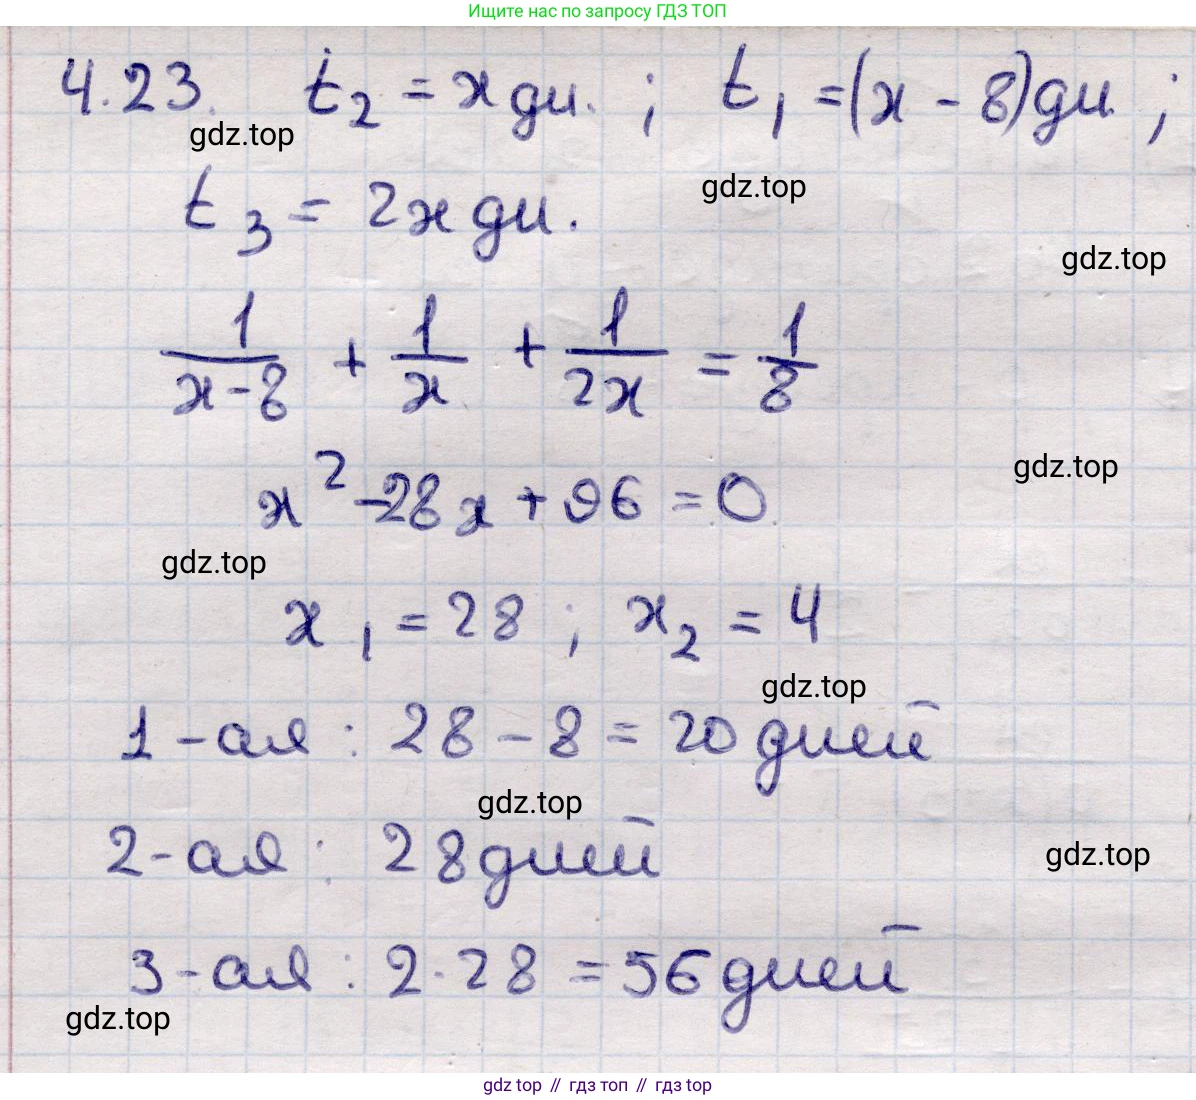 Ищите нас по запросу ГДЗ ТОП
4.23. t₂ = x дн. ; t₁ = (x - 8) дн ;
gdz.top
gdz.top
t₃ = 2x дн.
gdz.top
1/(x-8) + 1/x + 1/(2x) = 1/8
gdz.top
x² - 28x + 96 = 0
gdz.top
x₁ = 28 ; x₂ = 4
gdz.top
1-ая : 28 - 8 = 20 дней
gdz.top
2-ая : 28 дней
gdz.top
3-ая : 2·28 = 56 дней
gdz.top
gdz top // гдз топ // gdz top